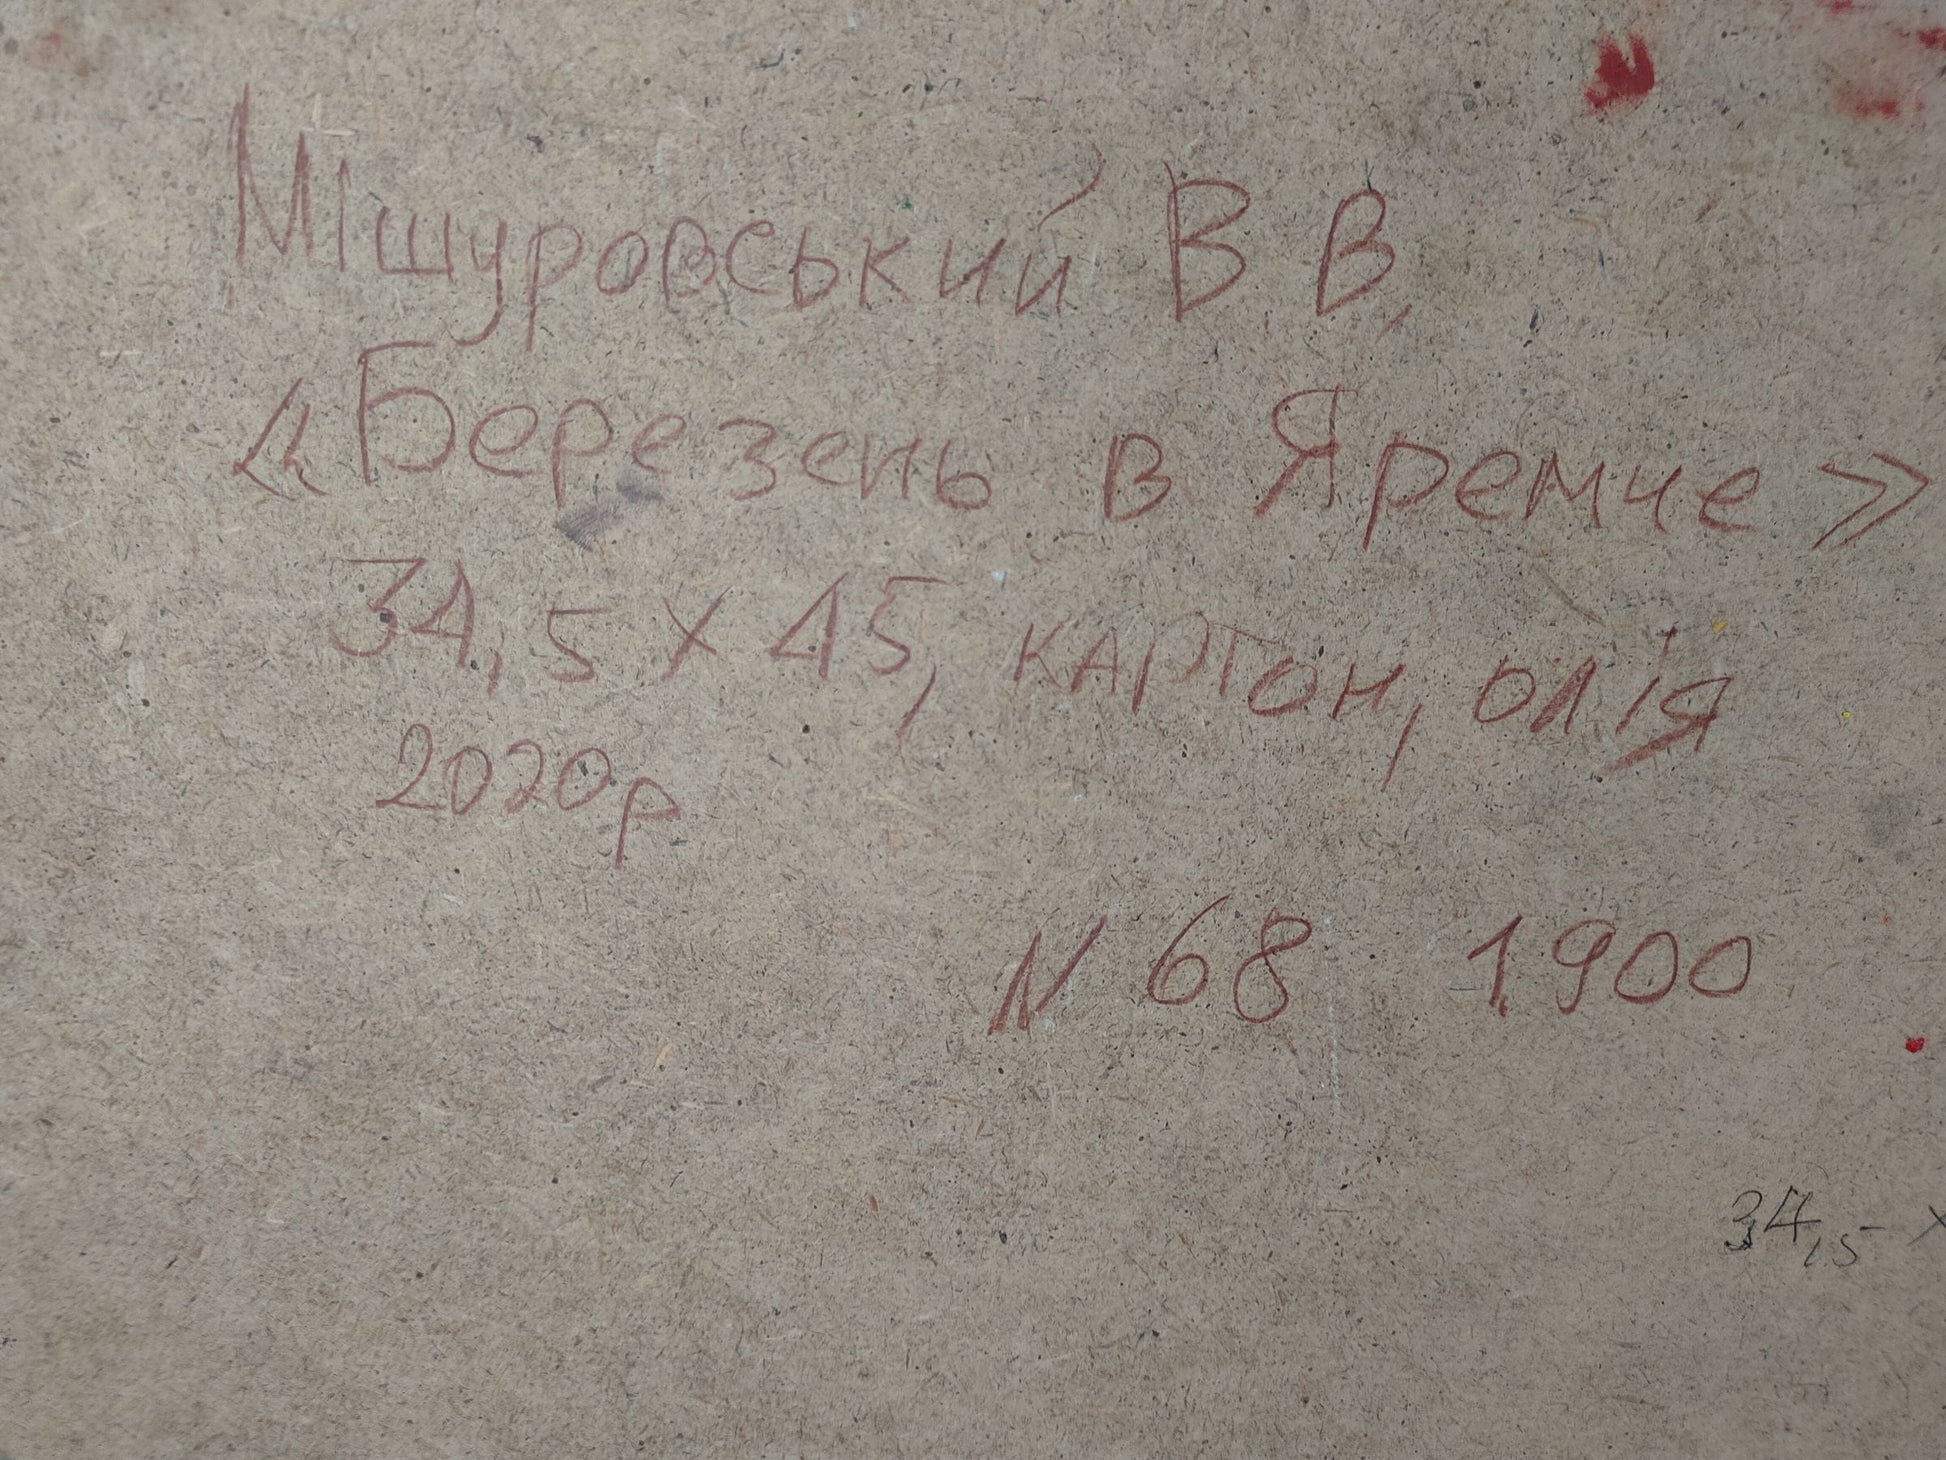 Мішуровський В В.
«Березень в Яремче»
34,5 х 45, картон, олія
2020р
N 68 1900
34,5 х